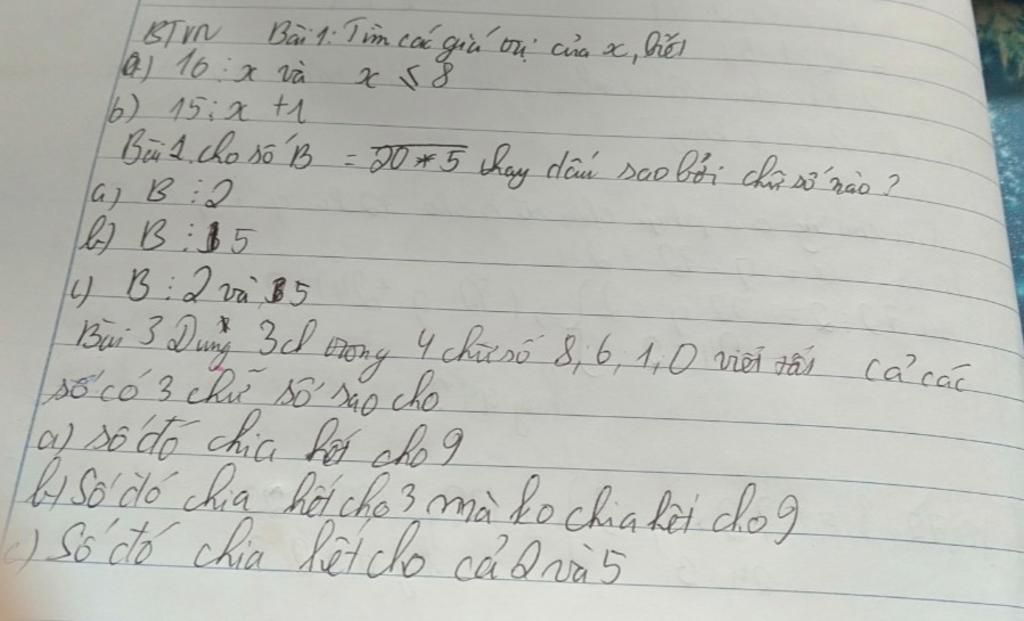 BTVN Bài 1: Tìm các giá trị của x, biết
a) 16 ⋮ x và x < 8
b) 15 ⋮ x + 1
Bài 2. cho số B = 20*5 thay dấu sao bởi chữ số nào?
a) B ⋮ 2
b) B ⋮ 5
c) B ⋮ 2 và 5
Bài 3 Dùng 3 trong 4 chữ số 8, 6, 1, 0 viết tất cả các
số có 3 chữ số sao cho
a) số đó chia hết cho 9
b) Số đó chia hết cho 3 mà ko chia hết cho 9
c) Số đó chia hết cho cả 2 và 5